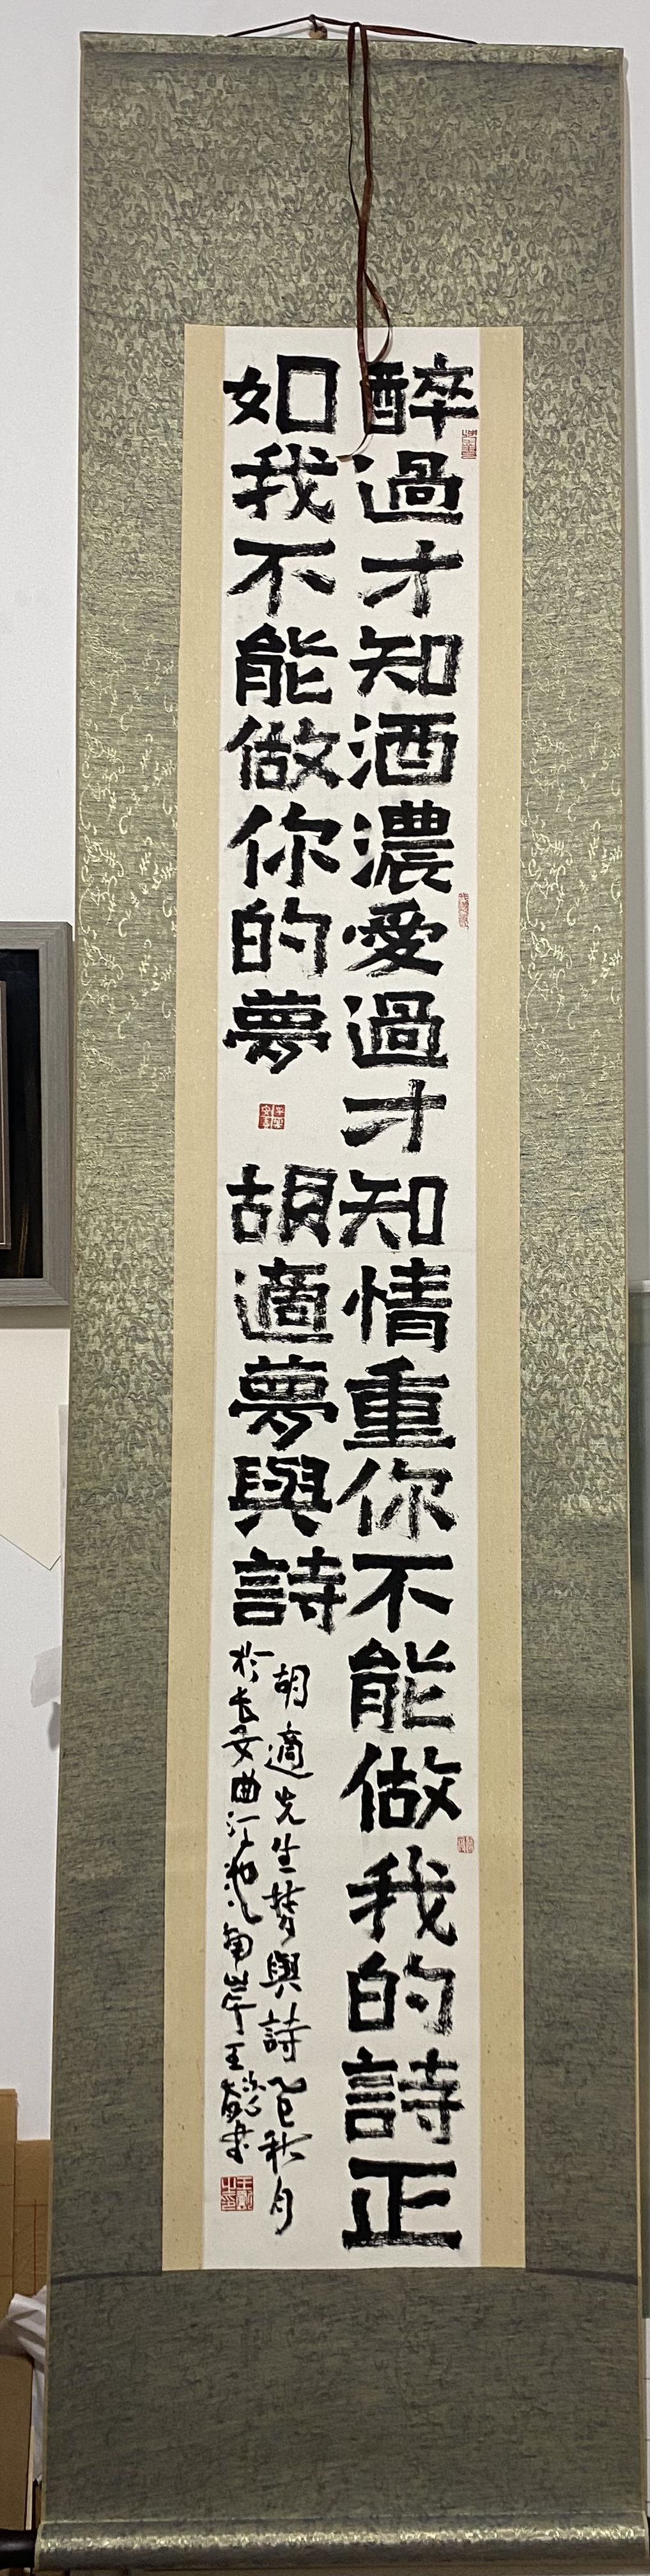 醉過才知酒濃愛過才知情重你不能做我的詩正
如我不能做你的夢 胡適夢與詩
胡適先生夢與詩乙巳秋月
於长安曲江池南岸王懿书